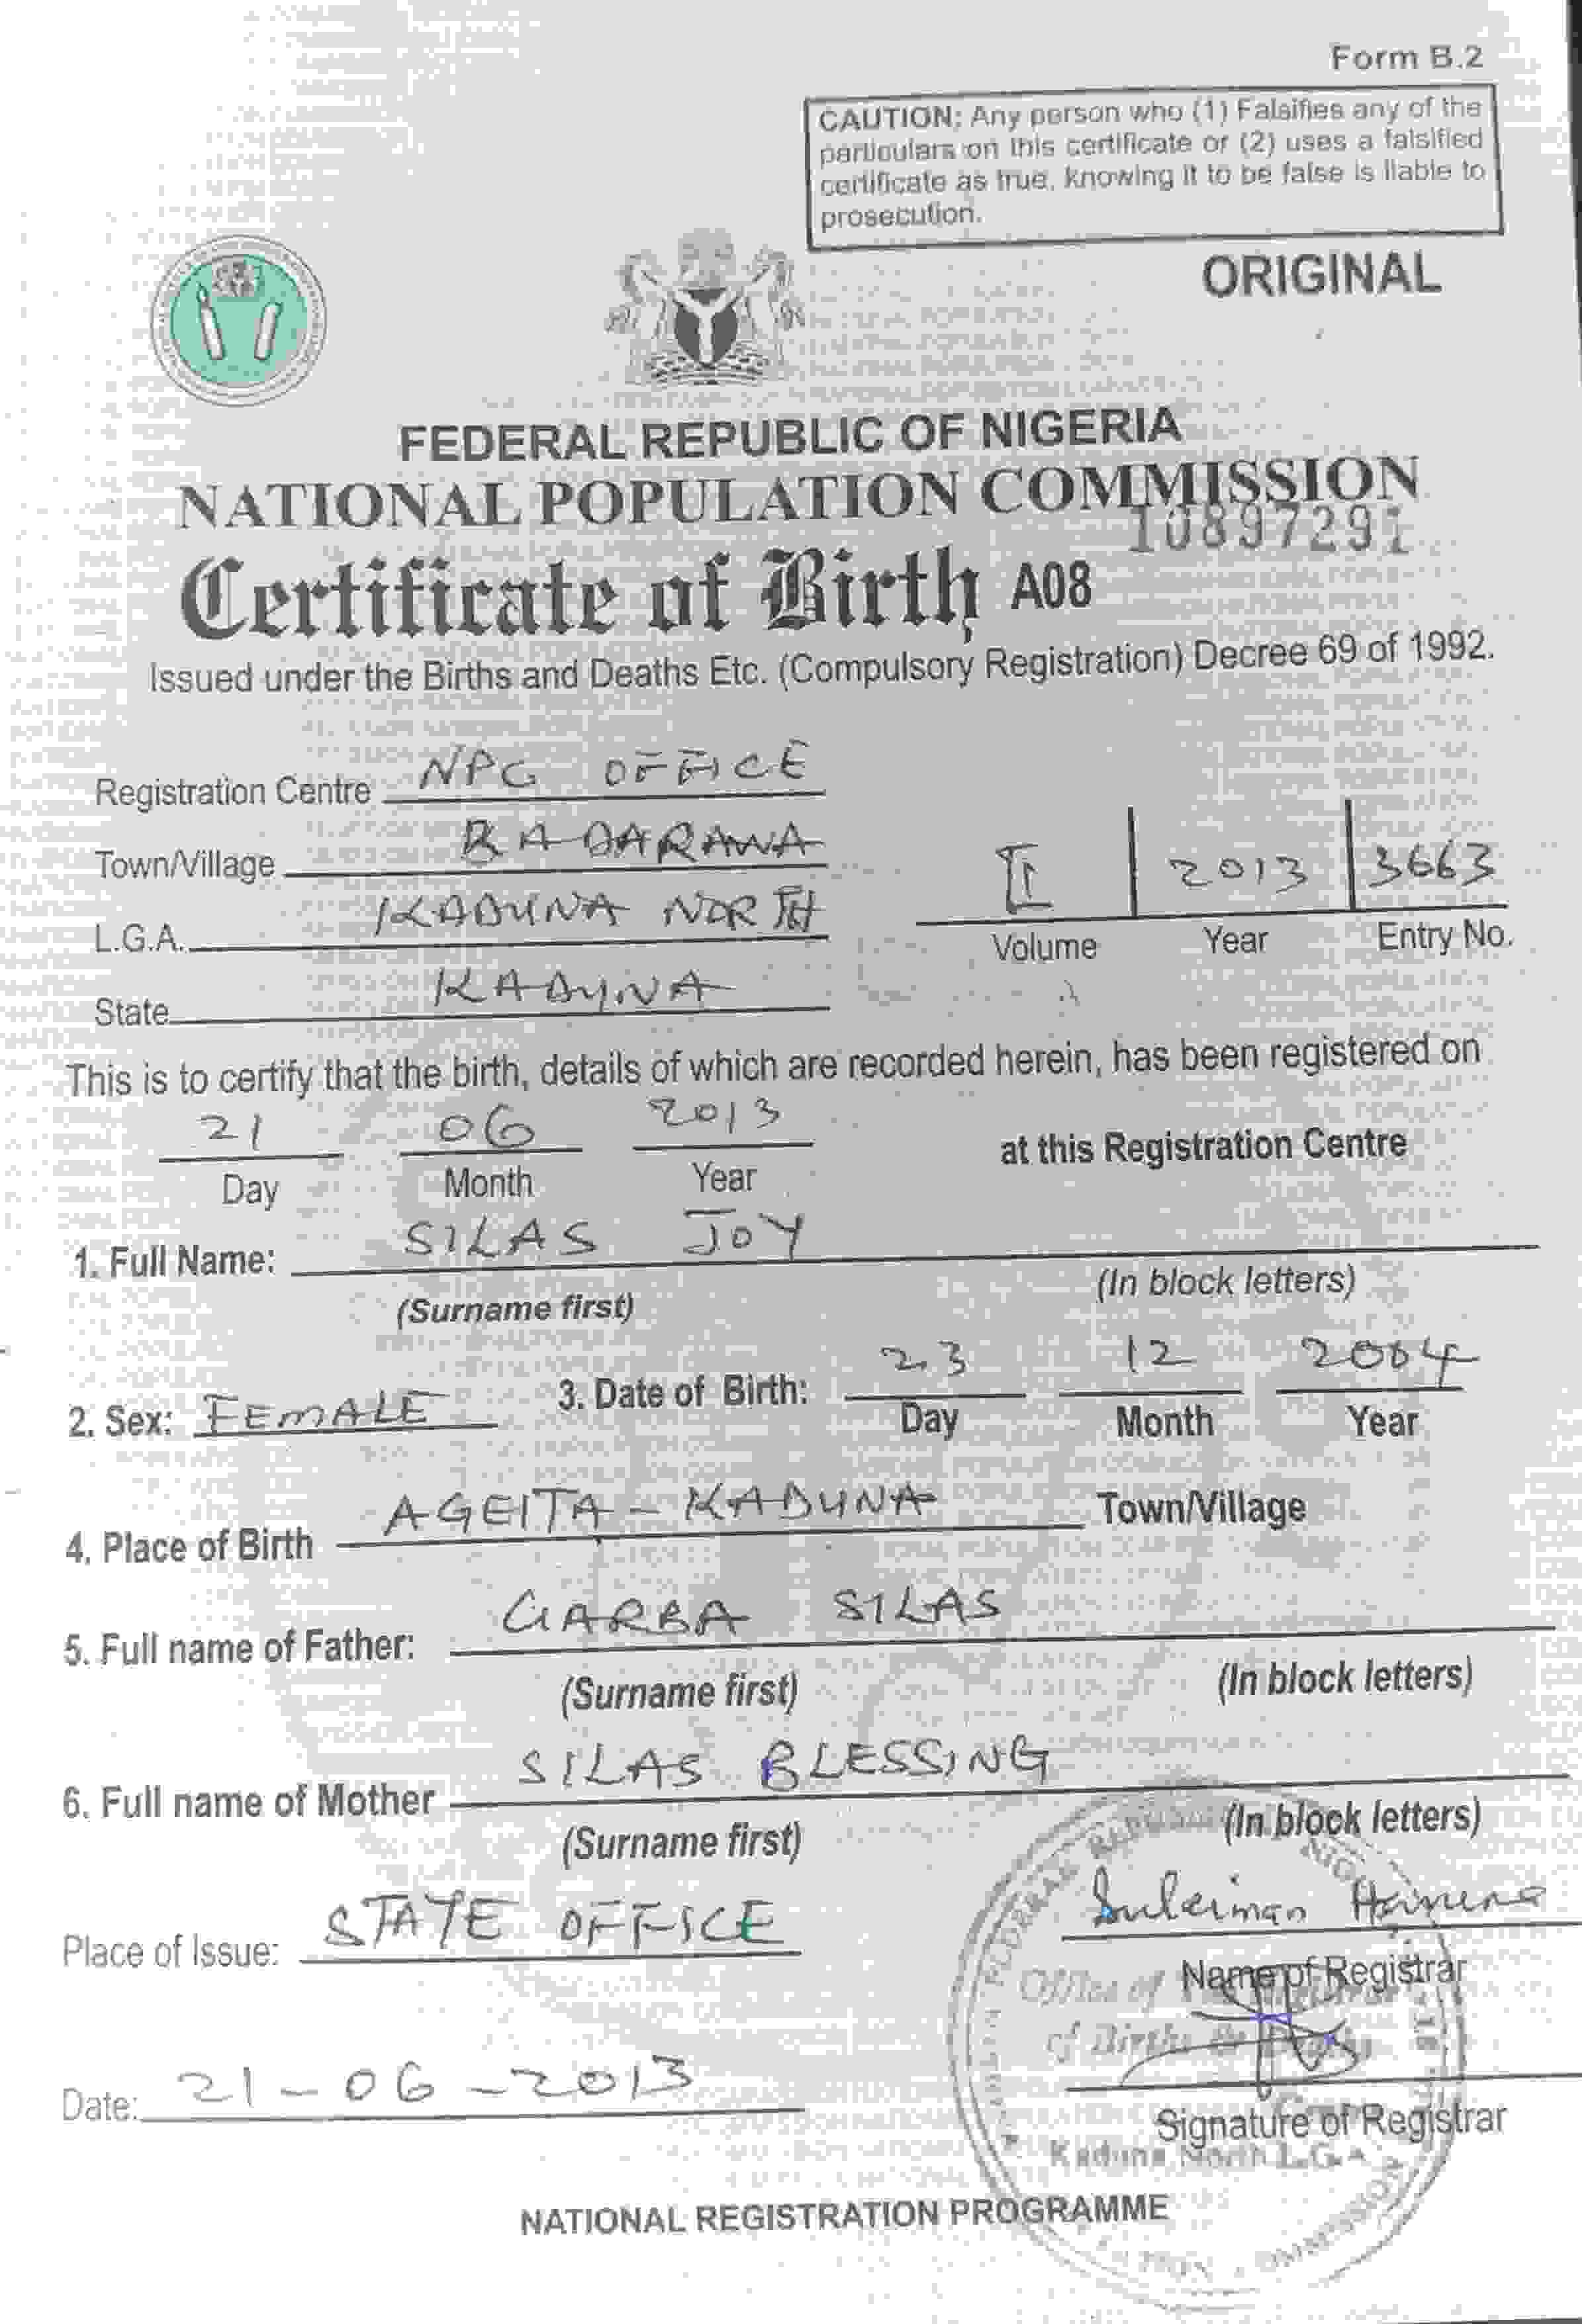 Form B.2
CAUTION: Any person who (1) Falsifies any of the
particulars on this certificate or (2) uses a falsified
certificate as true, knowing it to be false is liable to
prosecution.
ORIGINAL
FEDERAL REPUBLIC OF NIGERIA
NATIONAL POPULATION COMMISSION
10897291
Certificate of Birth A08
Issued under the Births and Deaths Etc. (Compulsory Registration) Decree 69 of 1992.
Registration Centre NPC OFFICE
Town/Village BADARAWA
L.G.A. KADUNA NORTH
State KADUNA
II 2013 3663
Volume Year Entry No.
This is to certify that the birth, details of which are recorded herein, has been registered on
21 06 2013 at this Registration Centre
Day Month Year
1. Full Name: SILAS JOY
(Surname first) (In block letters)
2. Sex: FEMALE 3. Date of Birth: 23 12 2004
Day Month Year
4. Place of Birth AGEITA - KADUNA Town/Village
5. Full name of Father: GARBA SILAS
(Surname first) (In block letters)
6. Full name of Mother SILAS BLESSING
(Surname first) (In block letters)
Place of Issue: STATE OFFICE
Suleiman Haruna
Name of Registrar
Date: 21-06-2013
Signature of Registrar
Office of
of Births &
Kaduna North L.G.A
NATIONAL REGISTRATION PROGRAMME